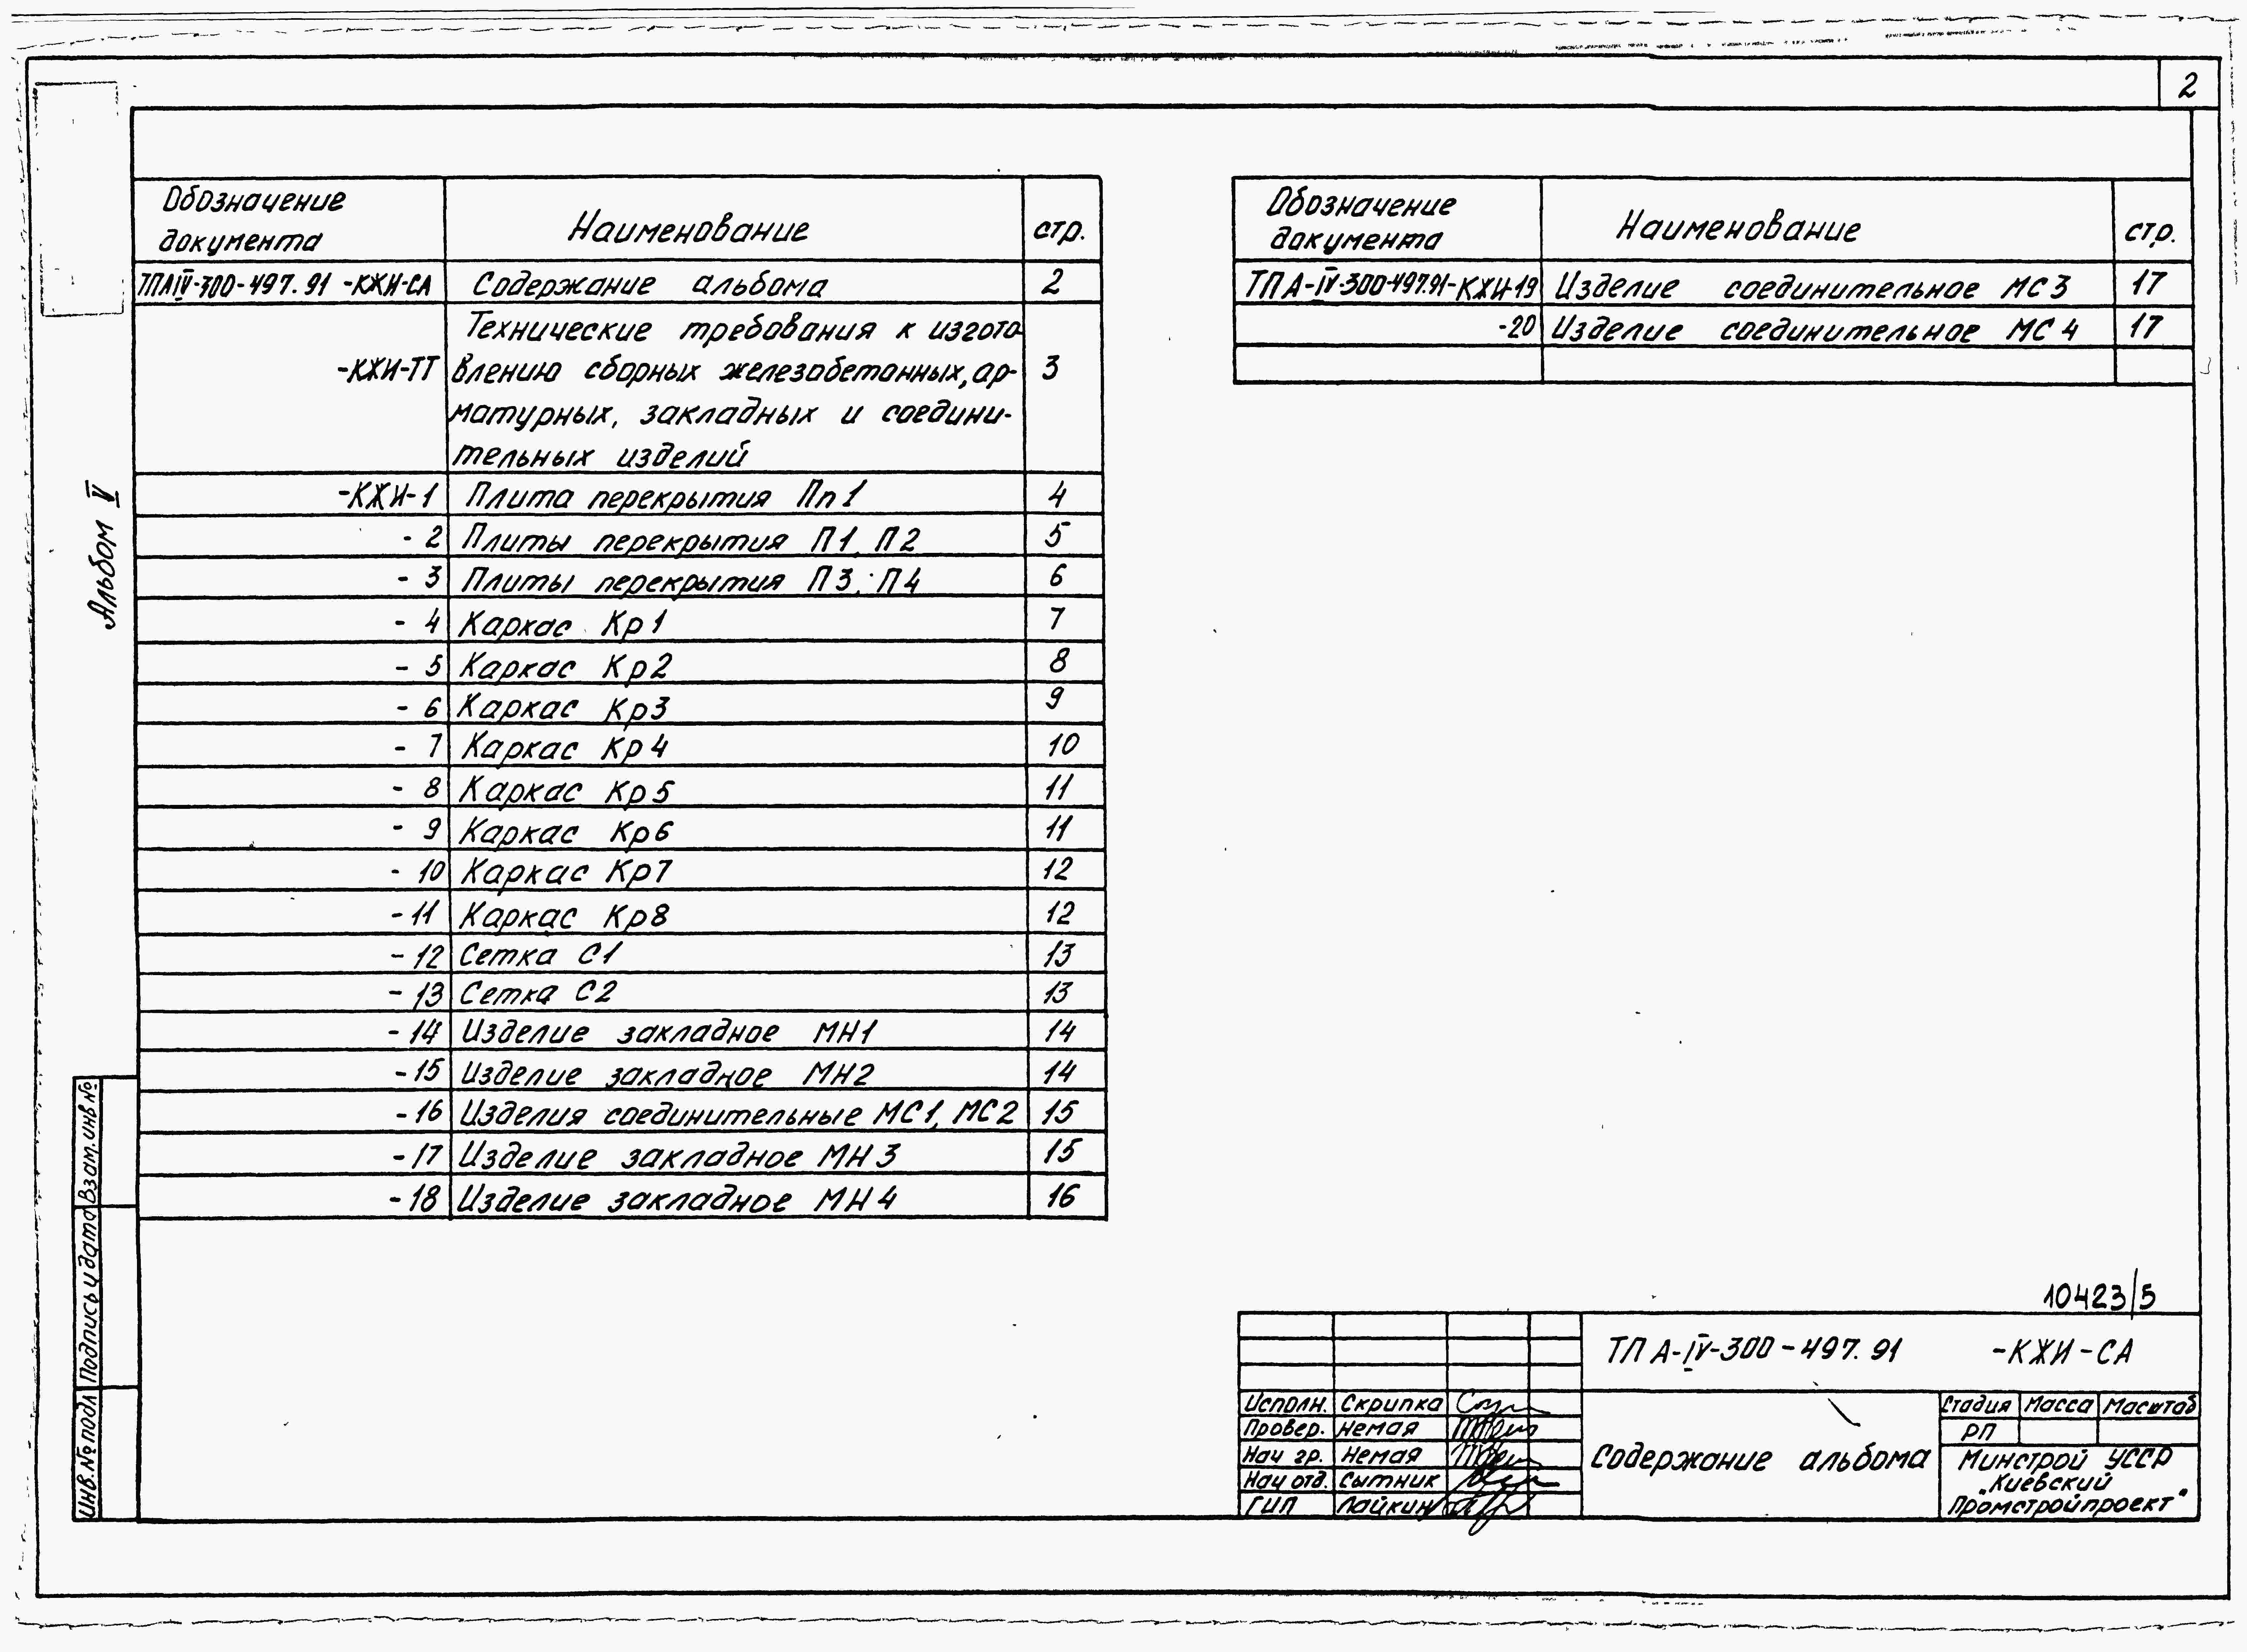 2
Обозначение документа Наименование стр.
ТПАIV-300-497.91 -КЖИ-СА Содержание альбома 2
Технические требования к изгото-
-КЖИ-ТТ влению сборных железобетонных, ар- 3
матурных, закладных и соедини-
тельных изделий
-КЖИ-1 Плита перекрытия Пп1 4
- 2 Плиты перекрытия П1, П2 5
- 3 Плиты перекрытия П3; П4 6
- 4 Каркас Кр1 7
- 5 Каркас Кр2 8
- 6 Каркас Кр3 9
- 7 Каркас Кр4 10
- 8 Каркас Кр5 11
- 9 Каркас Кр6 11
- 10 Каркас Кр7 12
- 11 Каркас Кр8 12
- 12 Сетка С1 13
- 13 Сетка С2 13
- 14 Изделие закладное МН1 14
- 15 Изделие закладное МН2 14
- 16 Изделия соединительные МС1, МС2 15
- 17 Изделие закладное МН3 15
- 18 Изделие закладное МН4 16
Обозначение документа Наименование стр.
ТП А-IV-300-497.91-КЖИ-19 Изделие соединительное МС3 17
-20 Изделие соединительное МС4 17
Альбом V
Взам.инв№
Подпись и дата
Инв.№подл
10423/5
ТП А-IV-300-497.91 -КЖИ-СА
Исполн. Скрипка
Провер. Немая
Нач гр. Немая
Нач отд. Сытник
ГИП Лайкин
Содержание альбома
Стадия Масса Масштаб
РП
Минстрой УССР
„Киевский
Промстройпроект"